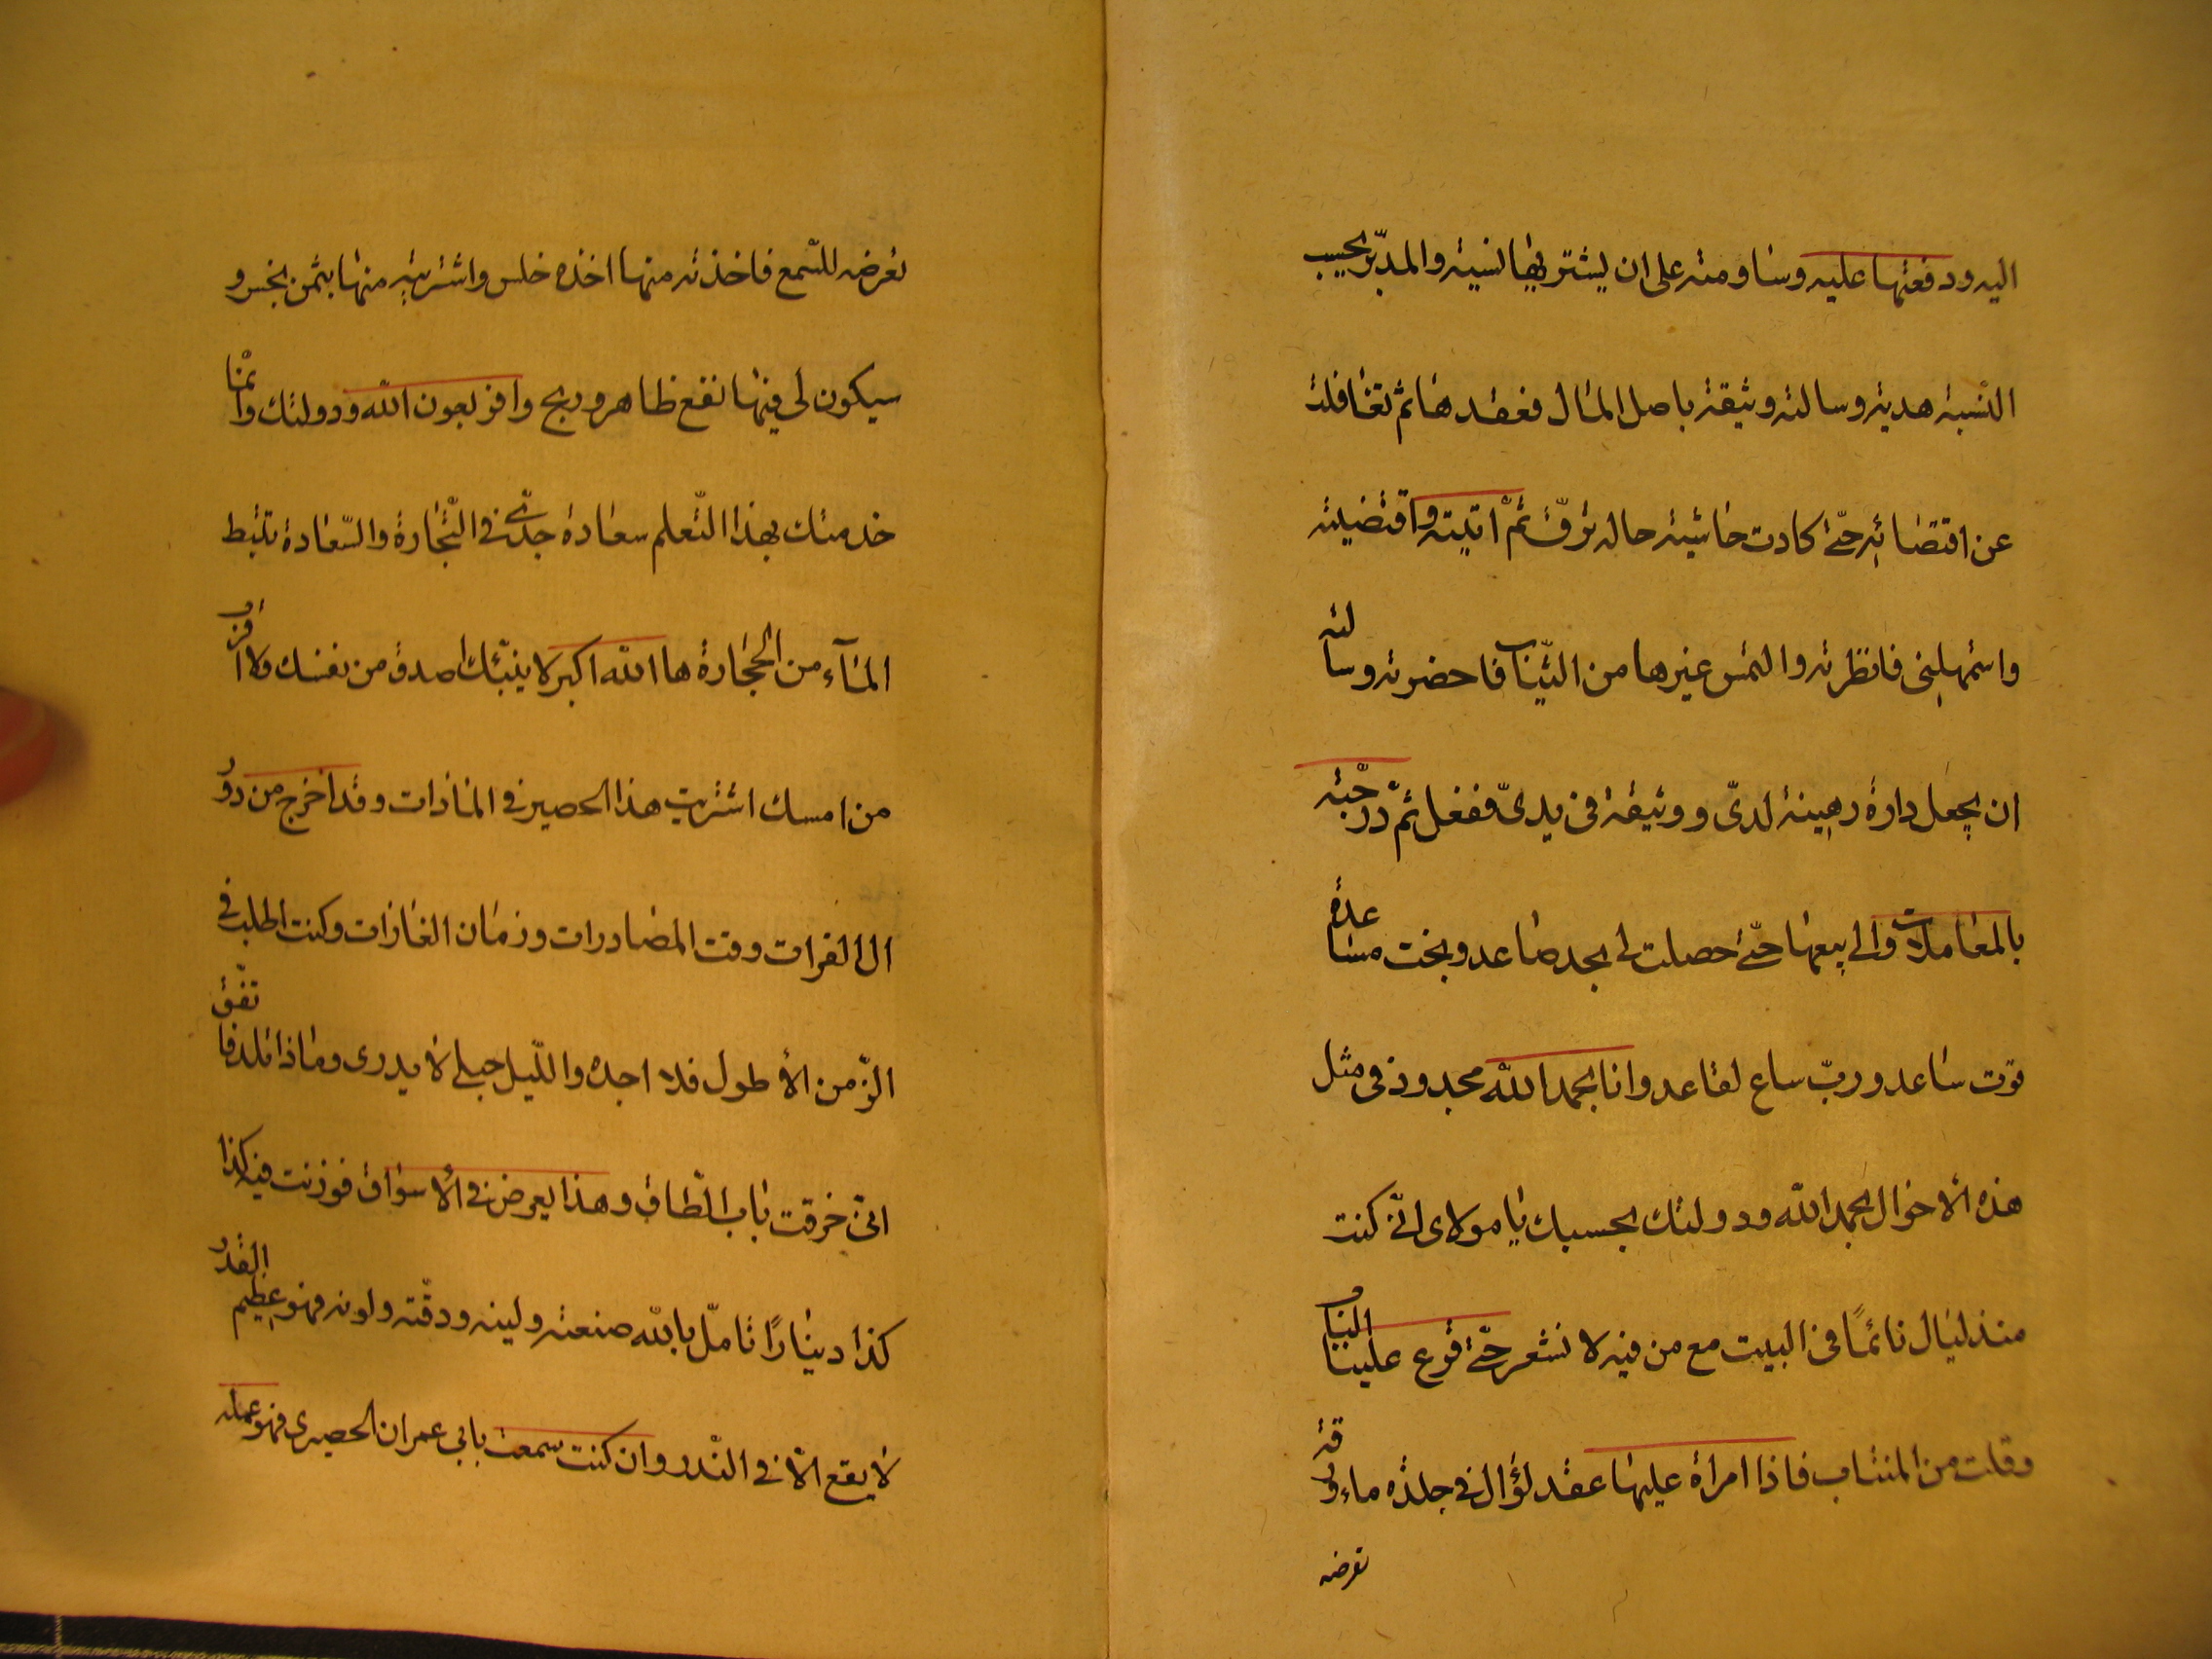 اليه ودفعتها عليه وساومته على ان يشتريها نسية والمدبر يحسب
النسية هدية وسالته وثيقة باصل المال فعقدها ثم تغافلت
عن اقتضائه حتى كادت حاشية حاله ترق ثم اتيته واقتضيته
واستمهلنى فانظرته والتمس غيرها من الثياب فاحضرته وسالته
ان يجعل داره رهينة لدى ووثيقة فى يدى ففعل ثم درجته
بالمعاملات والى بيعها حتى حصلت لى بجد صاعد وبخت مساعدة
قوت ساعد ورب ساع لقاعد وانا بحمد الله مجدود فى مثل
هذه الاحوال بحمد الله ودولتك بحسبك يا مولاى انى كنت
منذ ليال نائما فى البيت مع من فيه لا نشعر حتى قرع علينا الباب
وقلت من المنتاب فاذا امراة عليها عقد لؤال فى جلدة ماء ورقة
تعرضه
تعرضه للسمع فاخذته منها اخذه خلس واشتريته منها بثمن بخس و
سيكون لى فيها نفع ظاهر وربح وافر بعون الله ودولتك وانما
خدمتك بهذا التعلم سعادة جدى فى التجارة والسعادة تنبط
الماء من الحجارة ها الله اكبر لا ينبئك اصدق من نفسك ولا اقرب
من امسك اشتريت هذا الحصير فى المنادات وقد اخرج من دور
ال الفرات وقت المصادرات وزمان الغارات وكنت اطلب فى
الزمن الاطول فلا اجده والليل حبلى لا يدرى وماذا تلد فاتفق
انى خرقت باب الطاق وهذا يعرض فى الاسواق فوزنت فيه كذا
كذا دينارا تامل بالله صنعته ولينه ودقته ولونه فهو عظيم القدر
لا يقع الا فى الندر وان كنت سمعت بابى عمران الحصيرى فهو عمله